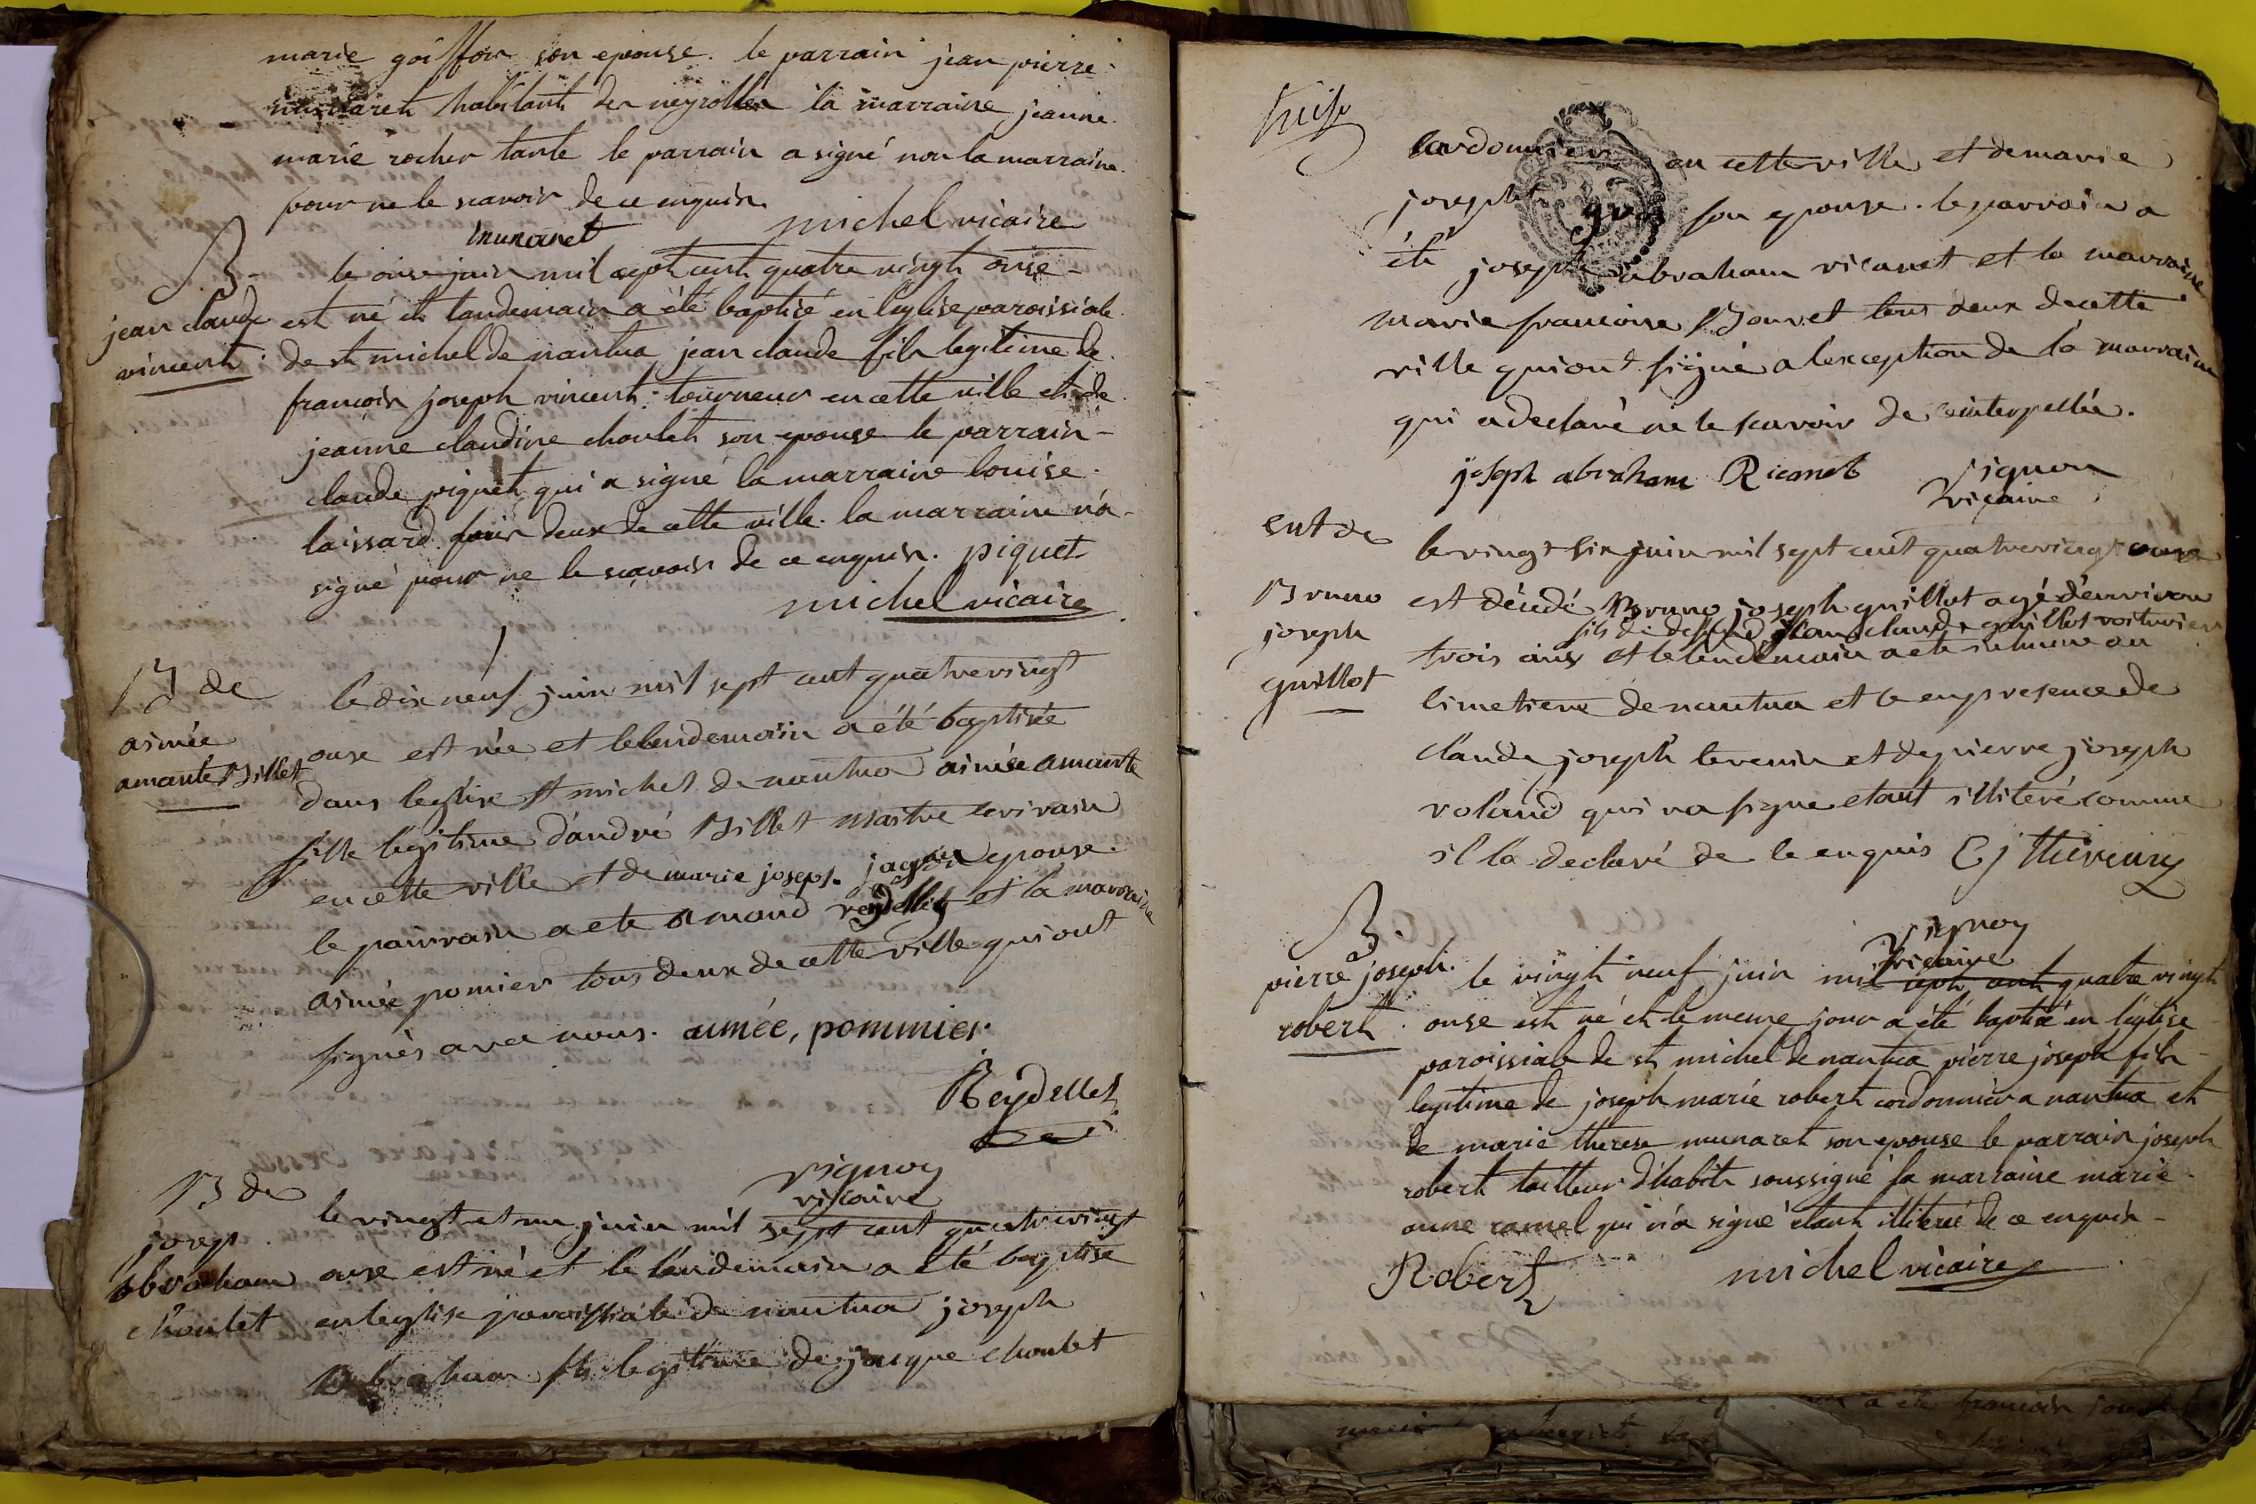 marie goiffon son epouse. le parrain jean pierre
munaret habitant des neyrolles la marraine jeanne
marie rocher tante le parrain a signé non la marraine
pour ne le scavoir de ce enquis.
munaret michel vicaire
B
jean claude
vincent
le onse juin mil sept cent quatre vingt onse
est né et landemain a été baptisé en l'eglise paroissiale
de st michel de nantua jean claude fils legitime de
francois joseph vincent tourneur en cette ville et de
jeanne claudine choulet son epouse le parrain
claude piquet qui a signé la marraine louise
laissard tous deux de cette ville. la marraine n'a
signé pour ne le scavoir de ce enquis. piquet
michel vicaire
B de
aimée
amante Billet
le dix neuf juin mil sept cent quatrevingt
onse est née et le lendemain a été baptisée
dans leglise st michel de nantua aimée amante
fille legitime d'andré Billet maitre ecrivain
en cette ville et de marie joseph epouse.
le parrain a ete amand reydellet et la marraine
aimée pomier tous deux de cette ville qui ont
signés avec nous. aimée, pommier
Reydellet
vignon
vicaire
B de
josep
abraham
choulet
le vingt et un juin mil sept cent quatrevingt
onze est né et le lendemain a été baptisé
en leglise paroissiale de nantua joseph
abraham fils legitime de jacque choulet
treise
cordonnier en cette ville et de marie
joseph gros son epouse. le parrain a
été joseph abraham ricanet et la marraine
marie francoise Bouvet tous deux de cette
ville qui ont signé a l'exception de la marraine
qui a declaré ne le scavoir de ce interpellée.
joseph abraham Ricanet vignon
vicaire
ent de
Bruno
joseph
guillot
le vingt six juin mil sept cent quatrevingt onse
est décédé Bruno joseph guillot agé d'environ
fils de defunt jean claude guillot voiturier
trois ans et le lendemain a ete inhumé au
cimetiere de nantua et ce en presence de
claude joseph tevenin et de pierre joseph
roland qui na signe etant illiteré comme
il l'a declaré de le enquis C j thevenin
vignon
vicaire
B.
pierre joseph
robert
le vingt neuf juin mil sept cent quatre vingt
onse est né et le meme jour a été baptisé en l'eglise
paroissiale de st michel de nantua pierre joseph fils
legitime de joseph marie robert cordonnier a nantua et
de marie therese munaret son epouse le parrain joseph
robert tailleur d'habits soussigné la marraine marie
anne ramel qui n'a signé etant illiteré de ce enquis
Robert michel vicaire